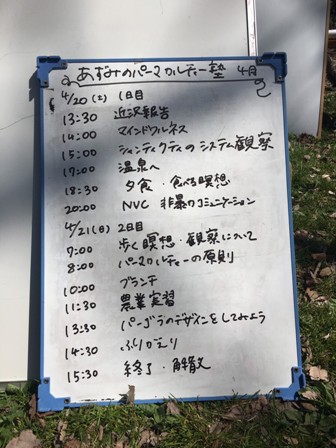 あずみのパーマカルチャー塾 4月
4/20(土) 1日目
13:30 近況報告
14:00 マインドフルネス
15:00 シャンティクティのシステム観察
17:00 温泉へ
18:30 夕食・食べる瞑想
20:00 NVC 非暴力コミュニケーション
4/21(日) 2日目
7:00 歩く瞑想・観察について
8:00 パーマカルチャーの原則
10:00 ブランチ
11:30 農業実習
13:30 パーゴラのデザインをしてみよう
14:30 ふりかえり
15:30 終了・解散